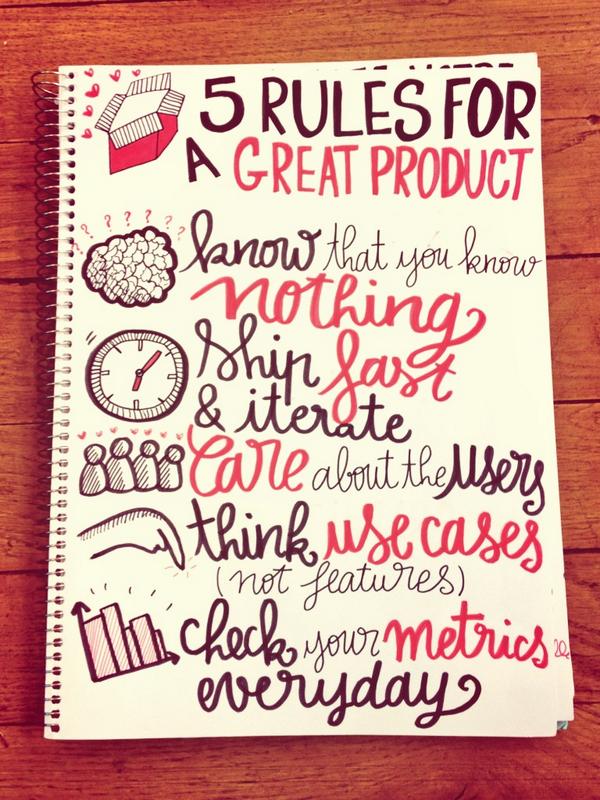 5 RULES FOR
A GREAT PRODUCT
know that you know
nothing
Ship fast
& iterate
Care about the users
think use cases
(not features)
check your metrics
everyday